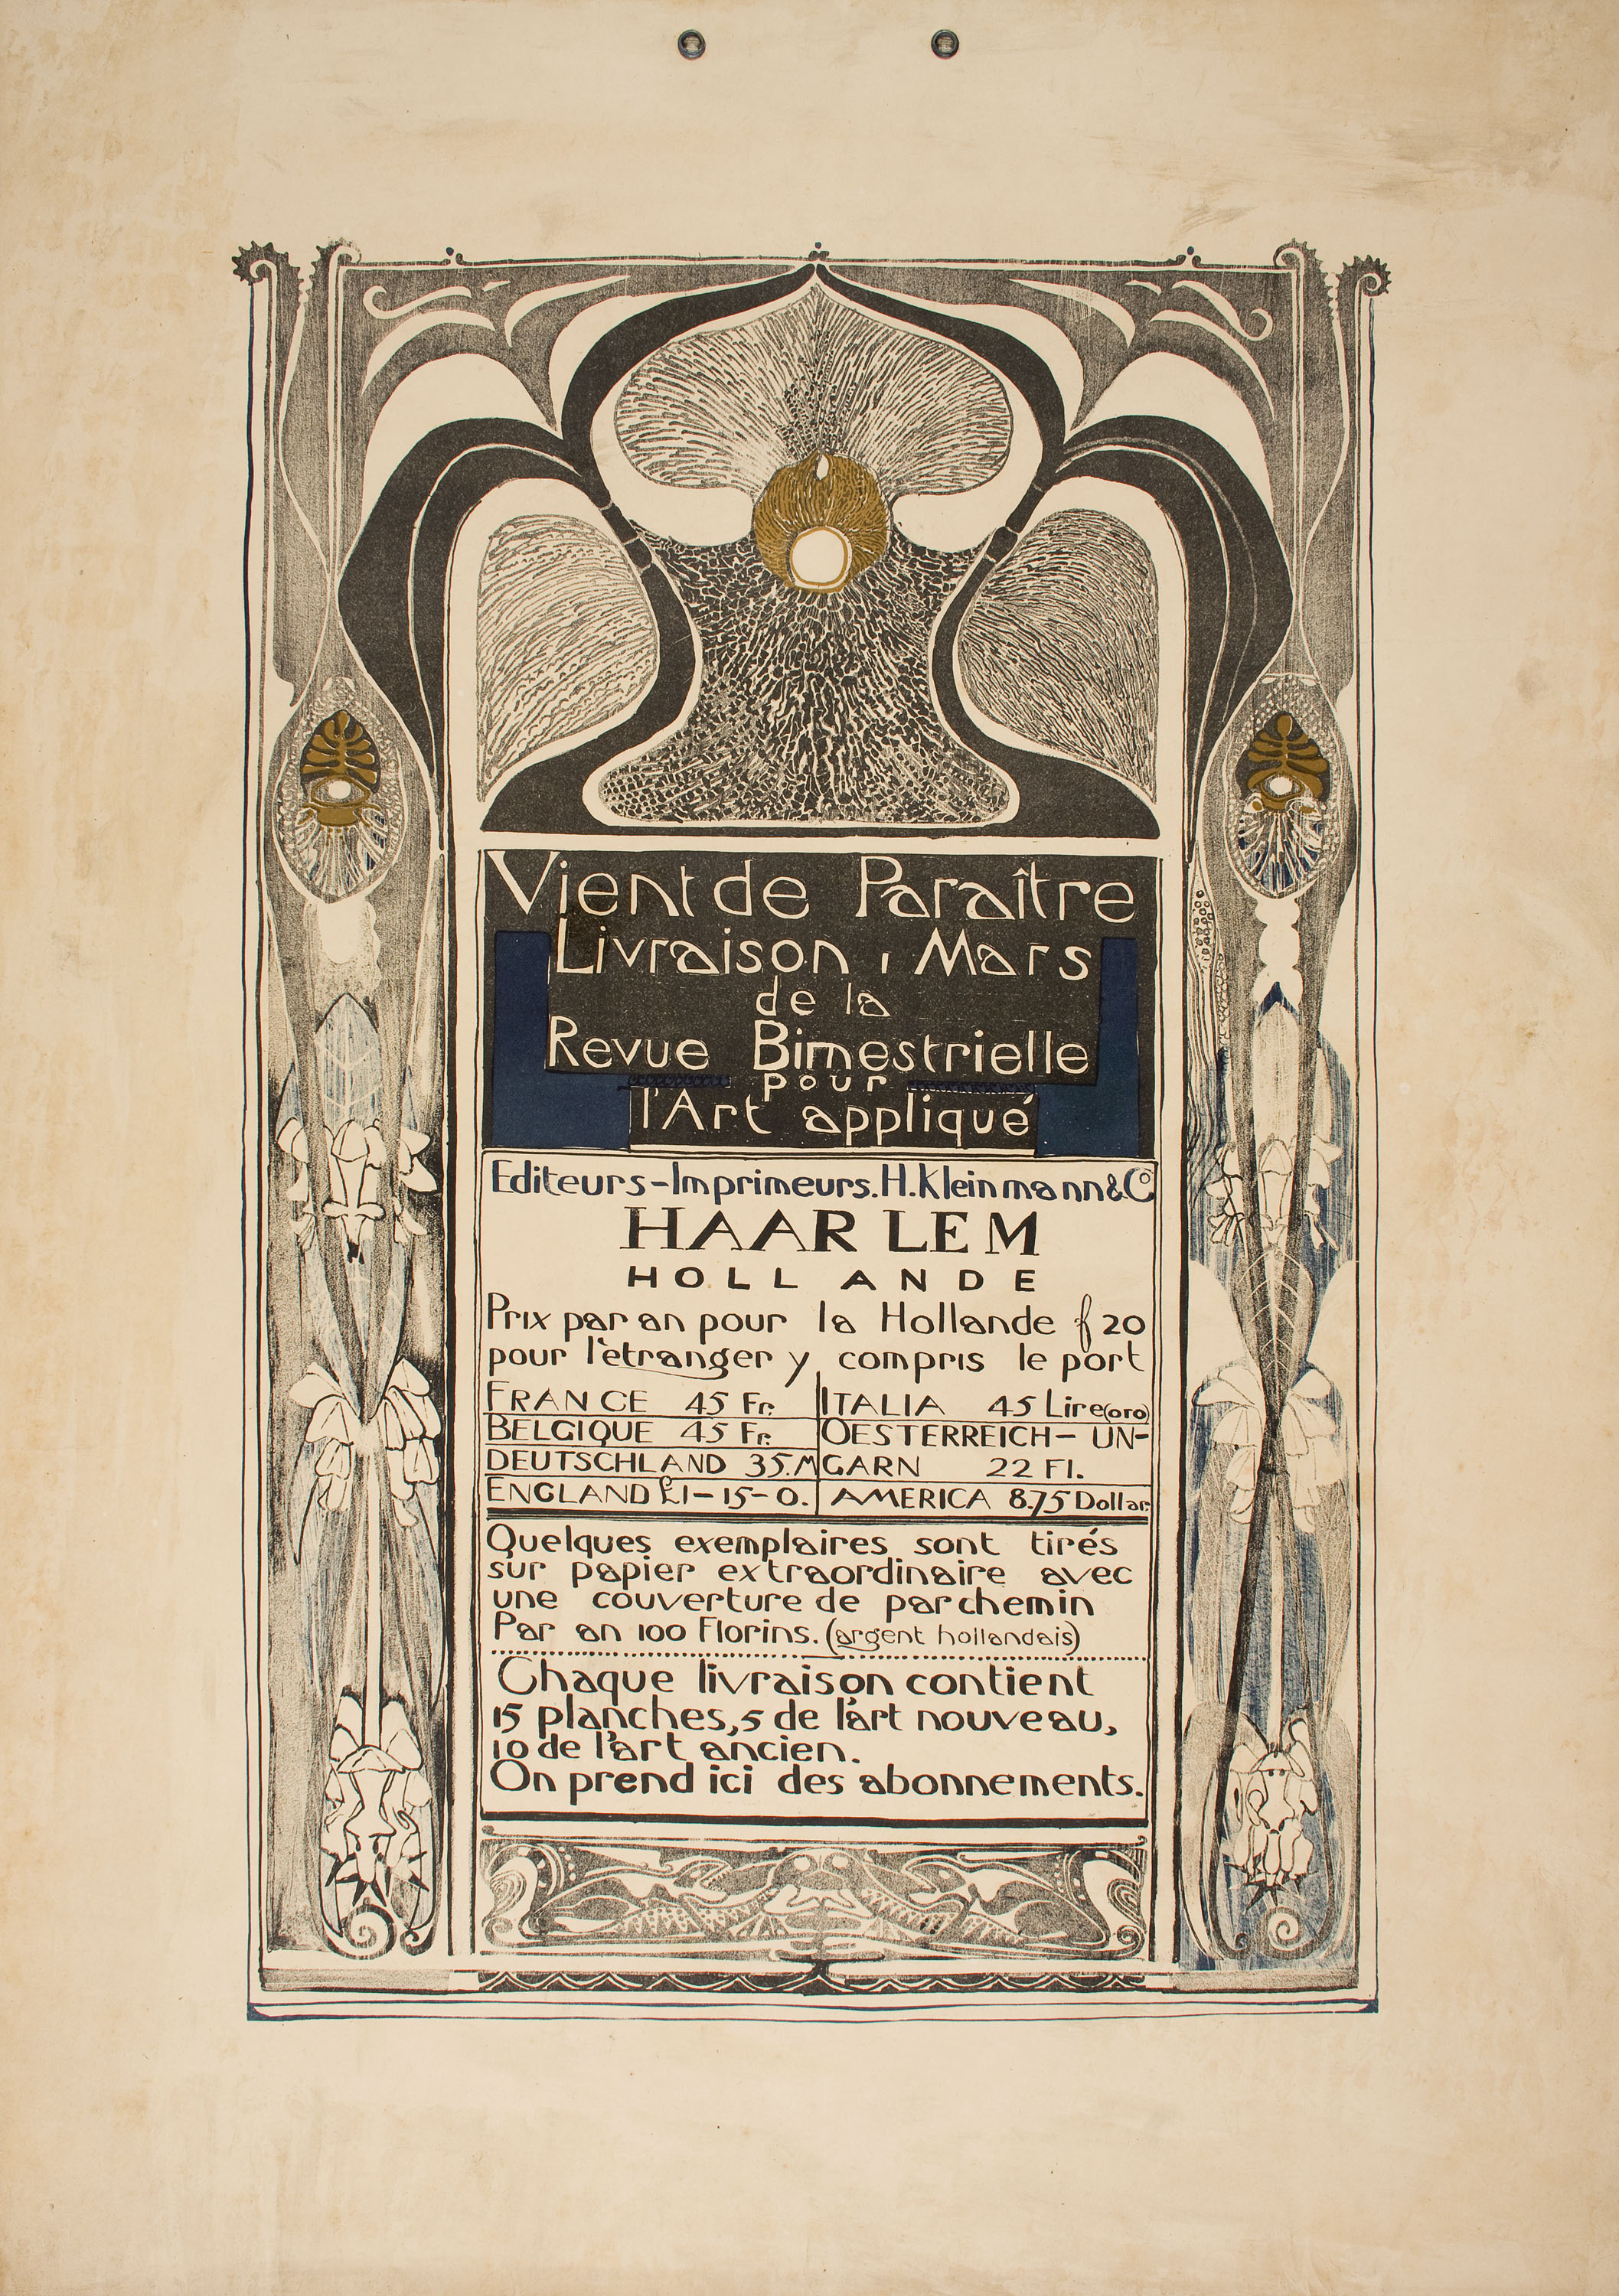 Vient de Paraître
Livraison 1 Mars
de la
Revue Bimestrielle
pour
l'Art appliqué
Editeurs-Imprimeurs. H. Kleinmann & Co
HAARLEM
HOLLANDE
Prix par an pour la Hollande f 20
pour l'étranger y compris le port
FRANCE 45 Fr.
BELGIQUE 45 Fr.
DEUTSCHLAND 35.M
ENGLAND £1-15-0.
ITALIA 45 Lire (oro)
OESTERREICH-UN-
GARN 22 Fl.
AMERICA 8.75 Dollar.
Quelques exemplaires sont tirés
sur papier extraordinaire avec
une couverture de parchemin
Par an 100 Florins. (argent hollandais)
Chaque livraison contient
15 planches, 5 de l'art nouveau,
10 de l'art ancien.
On prend ici des abonnements.